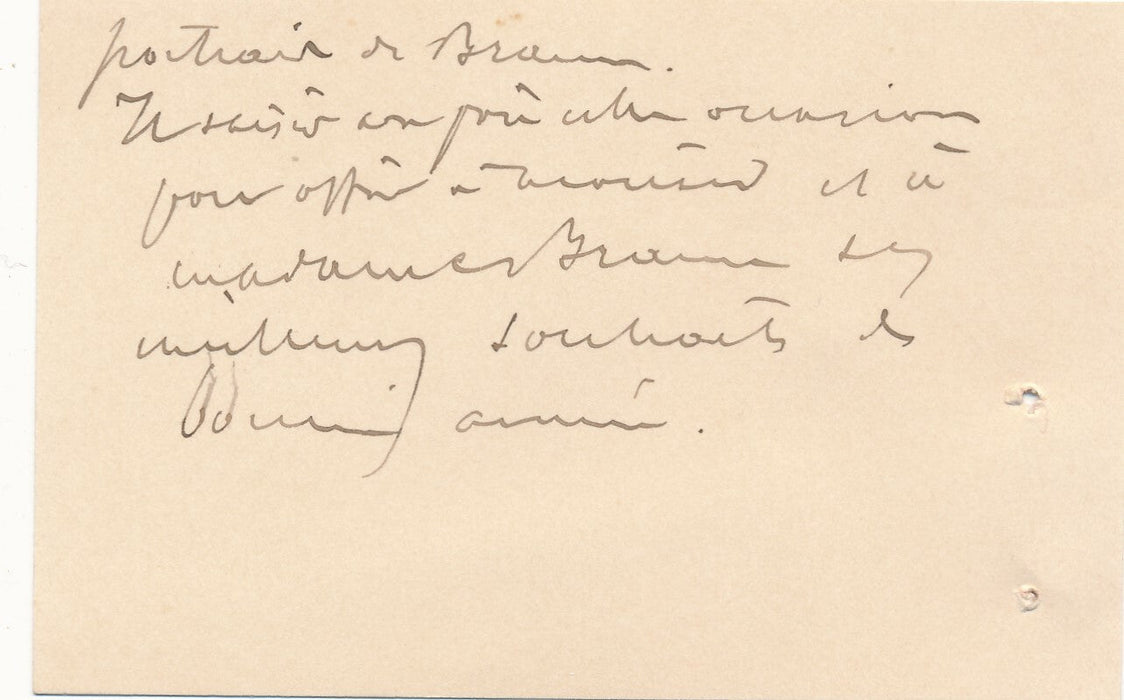 portrait de Braun.
Il saisit avec joie cette occasion
pour offrir à monsieur et à
madame Braun ses
meilleurs souhaits de
Bonne année.